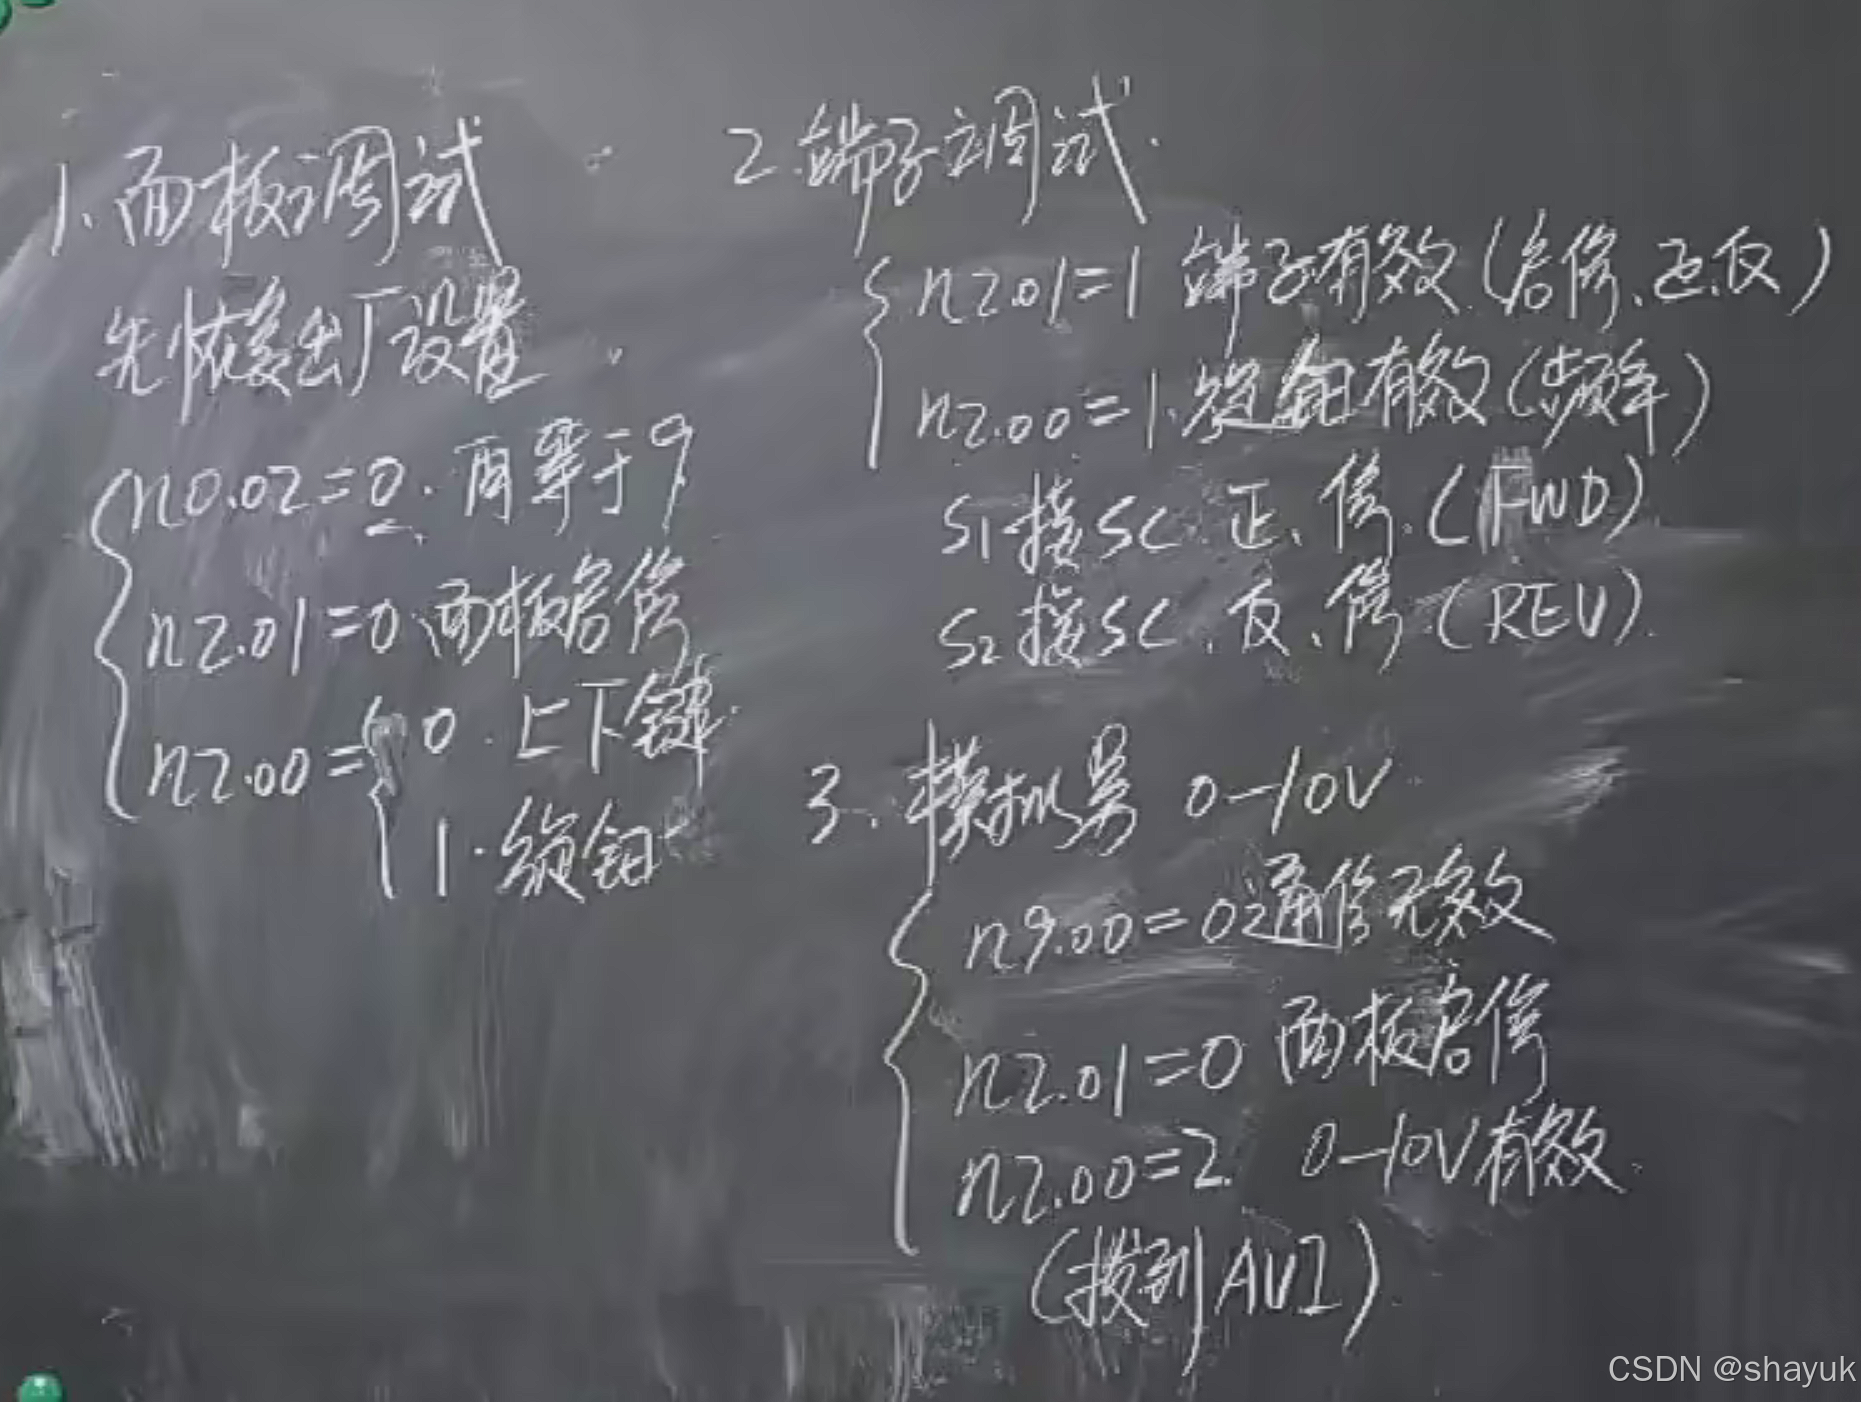 1. 面板调试
先恢复出厂设置
n0.02=0. 再等于9
n2.01=0 面板启停
n2.00= 0. 上下键
1. 旋钮
2. 端子调试.
n2.01=1 端子有效(启停、正、反)
n2.00=1. 旋钮有效(频率)
S1接SC 正、停.(FWD)
S2接SC、反、停.(REV).
3. 模拟量 0-10V
n9.00=0 通信无效
n2.01=0 面板启停
n2.00=2. 0-10V有效.
(拨到AVI)
CSDN @shayuk